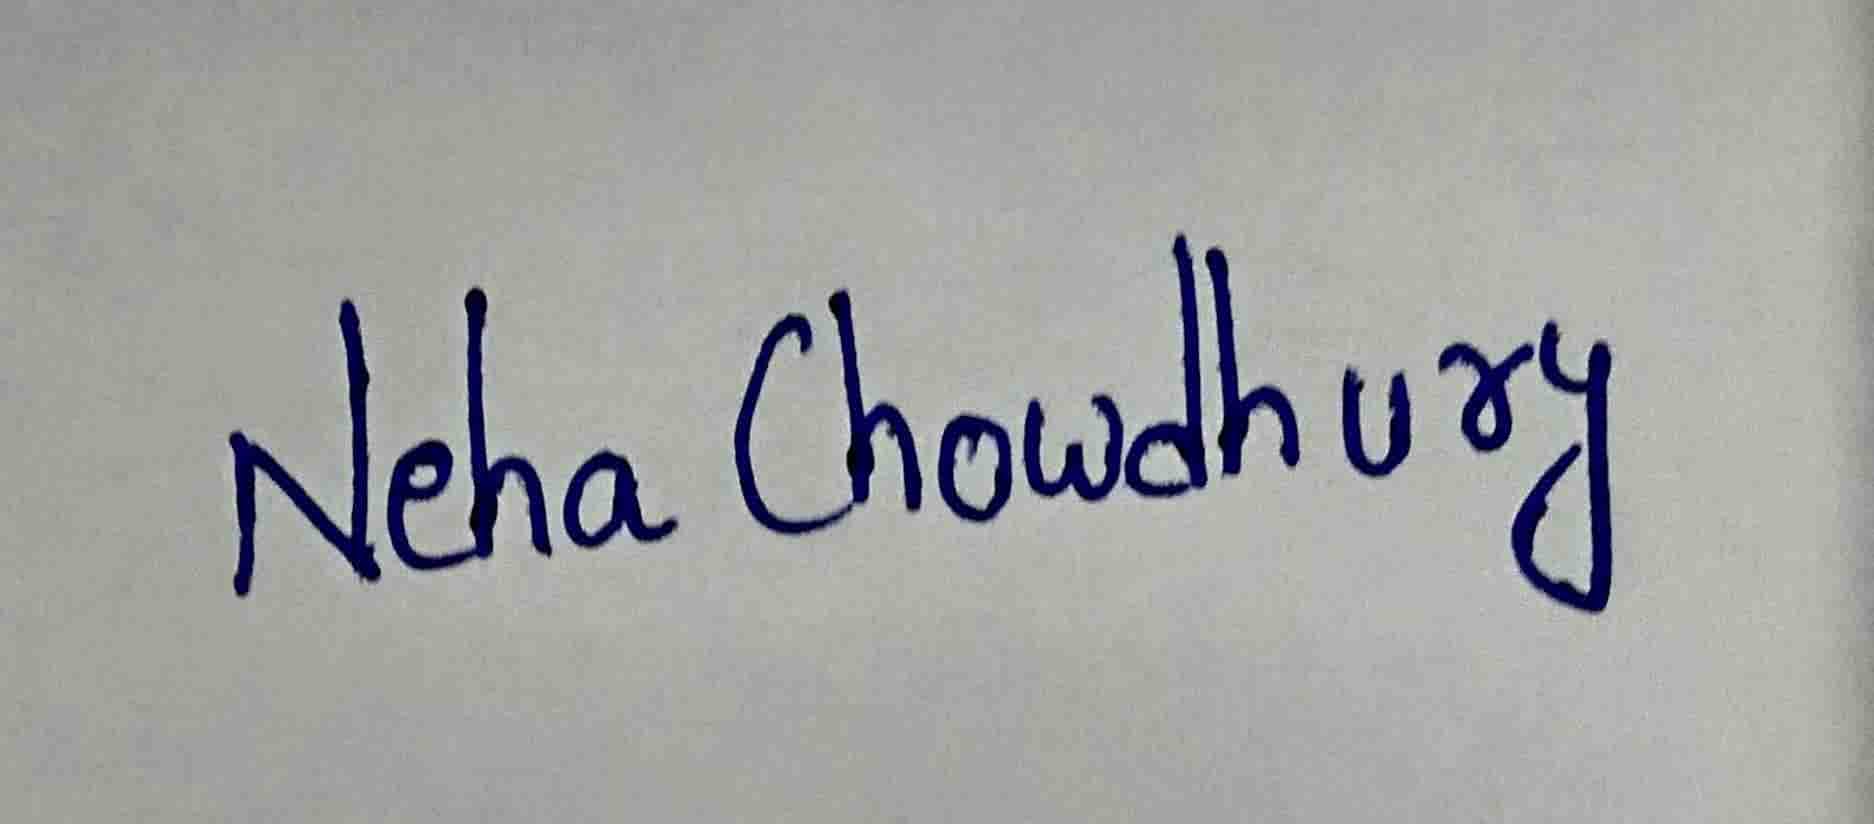 Neha Chowdhury